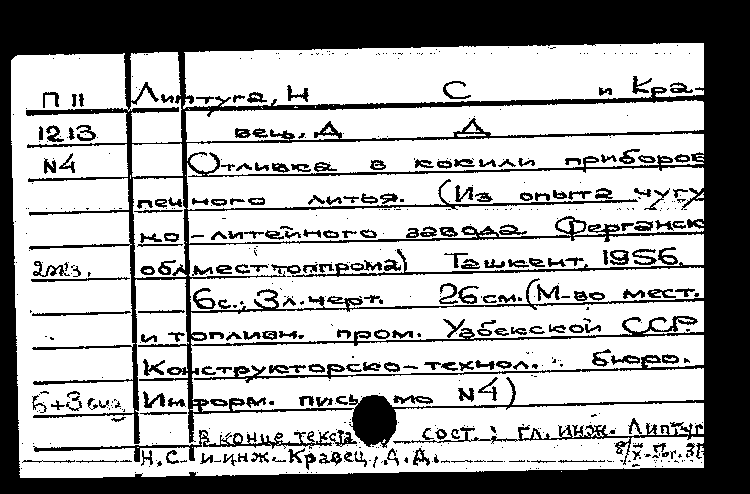 П 11 Липтуга, Н С и Кра-
1213 вец, Д Д
N4 Отливка в кокили приборов
печного литья. (Из опыта чугу
но-литейного завода Ферганск
2экз. облместтоппрома) Ташкент, 1956.
6с.; 3л.черт. 26см. (М-во мест.
и топливн. пром. Узбекской ССР.
Конструкторско-технол. бюро.
6+3 Информ. письмо N4)
В конце текста сост.: гл. инж. Липтуг
Н.С. и инж. Кравец, Д.Д.